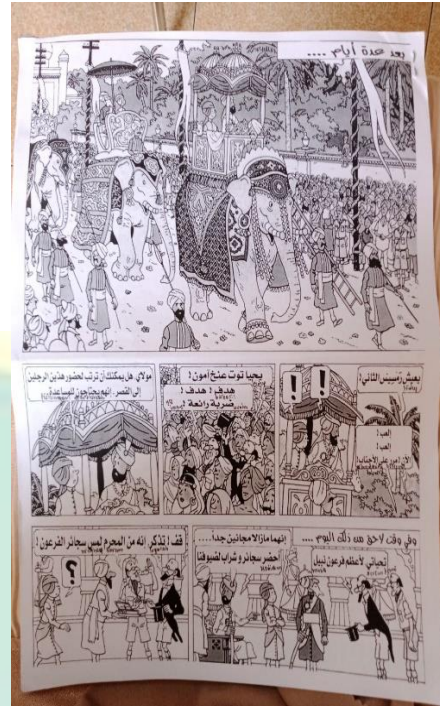 بعد عدة أيام ....
يعيش رمسيس الثاني!
!
!
العب!
العب!
يحيا توت عنخ آمون!
هدف! هدف!
ضربة رائعة!
مولاي، هل يمكنك أن ترتب لحضور هذين الرجلين
إلى القصر. إنهم يحتاجون للمساعدة
وفي وقت لاحق من ذلك اليوم ....
تحياتي لأعظم فرعون نبيل
إنهما مازالا مجانين جداً....
أحضر سجائر و شراب لضيوفنا
قف! تذكر إنه من المحرم لمس سجائر الفرعون!
؟